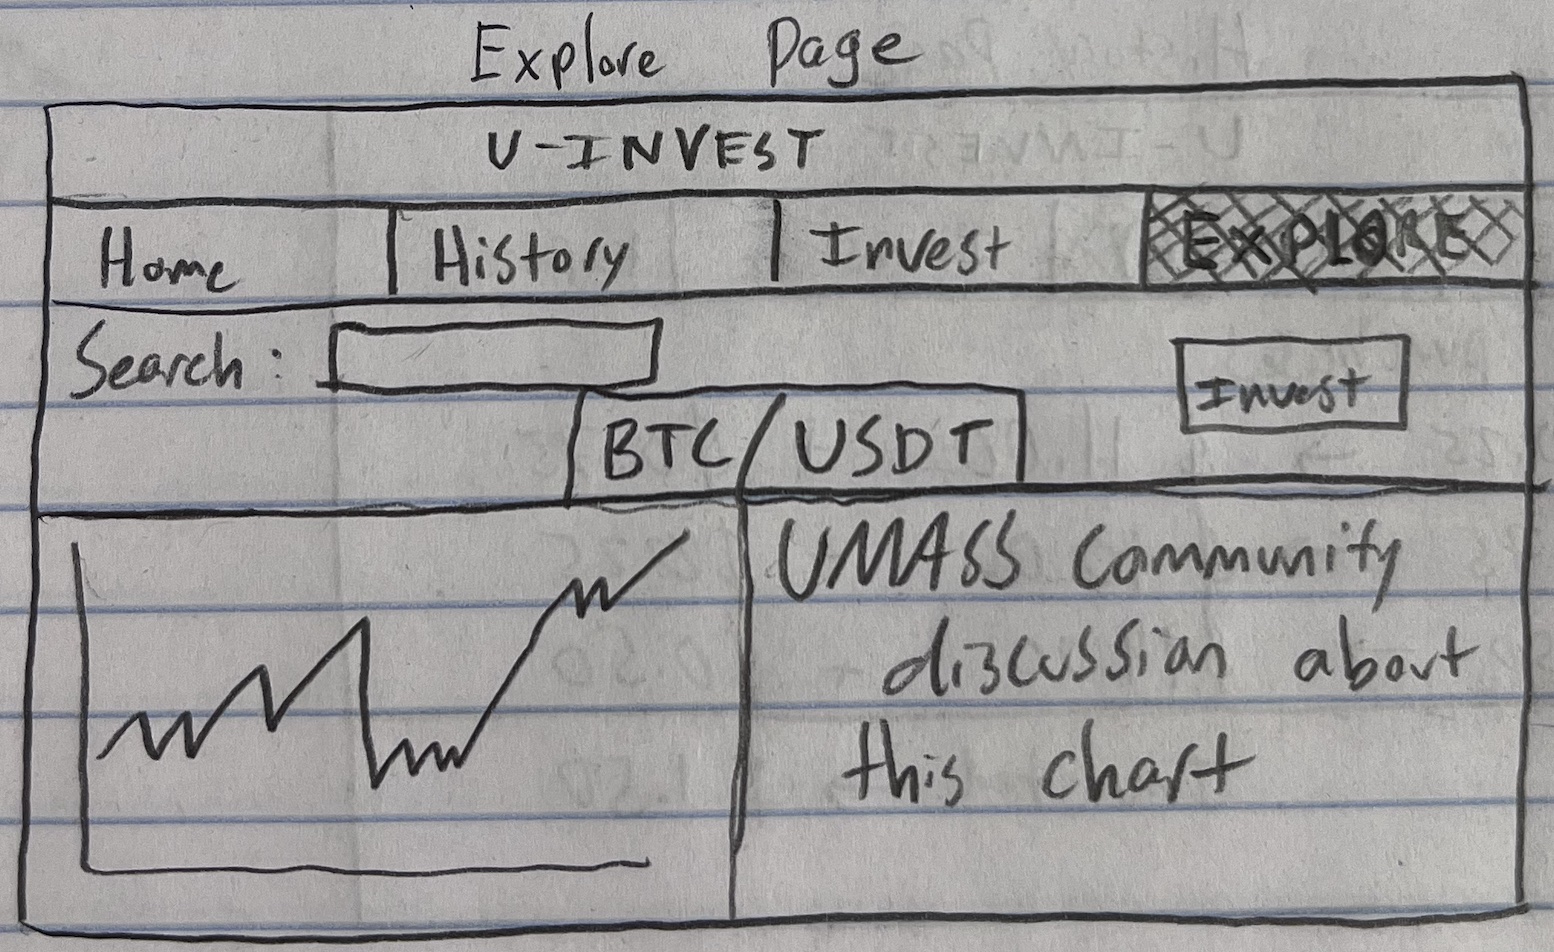 Explore Page
U-INVEST
Home History Invest EXPLORE
Search:
Invest
BTC/USDT
UMASS Community
discussion about
this chart